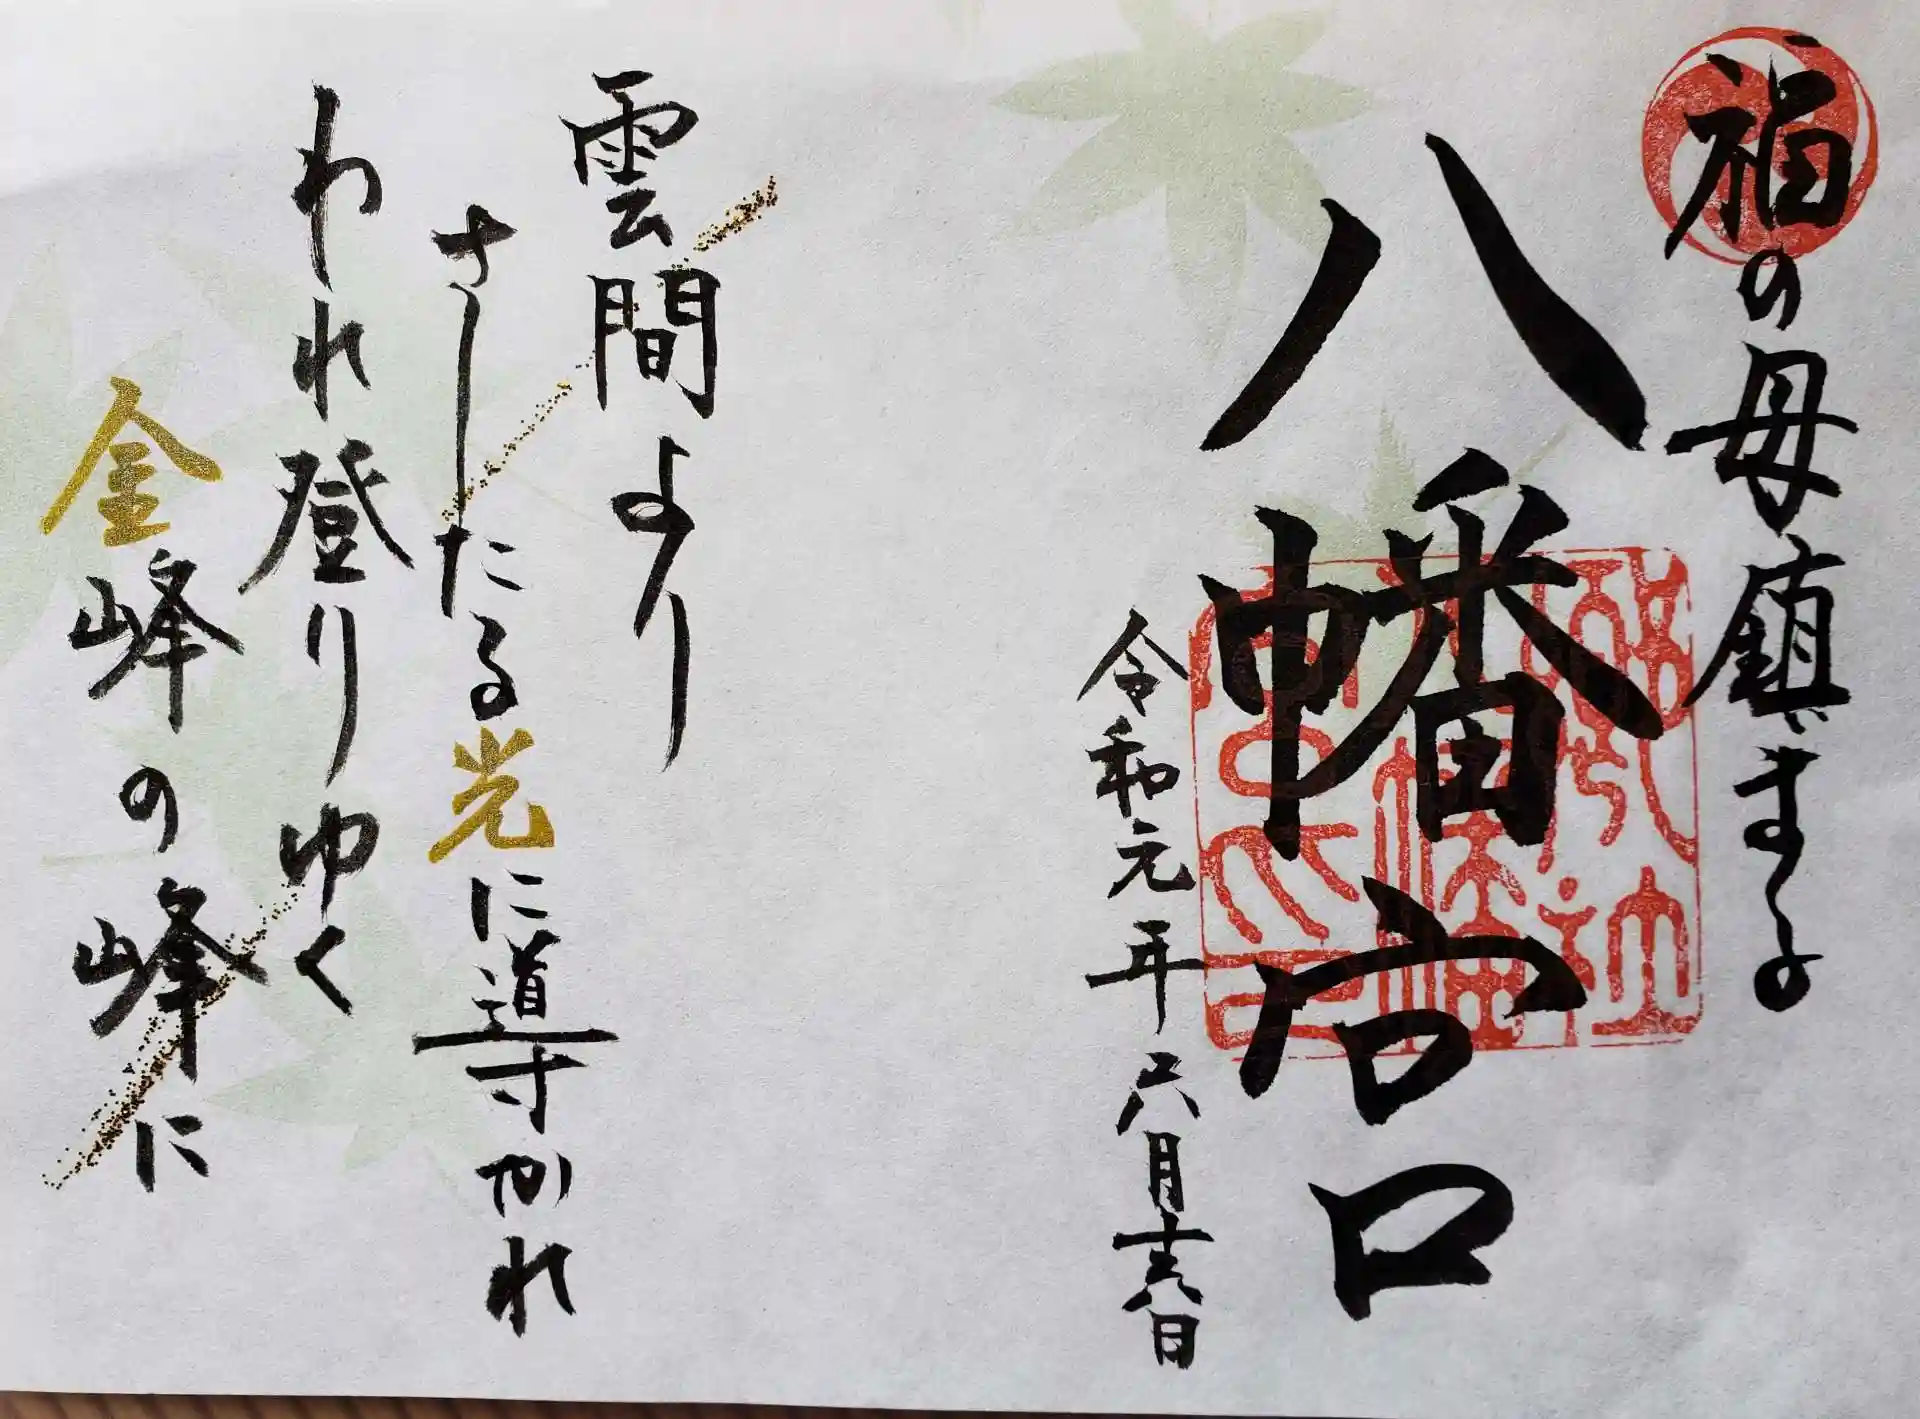 福の母鎮まる
八幡宮
令和元年六月十六日
雲間より
さしたる光に導かれ
われ登りゆく
金峰の峰に